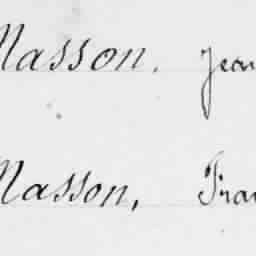 Masson. Jean
Masson, Fran